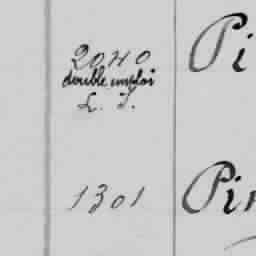 2040 Pi
double emploi
L. J.
1301 Pin